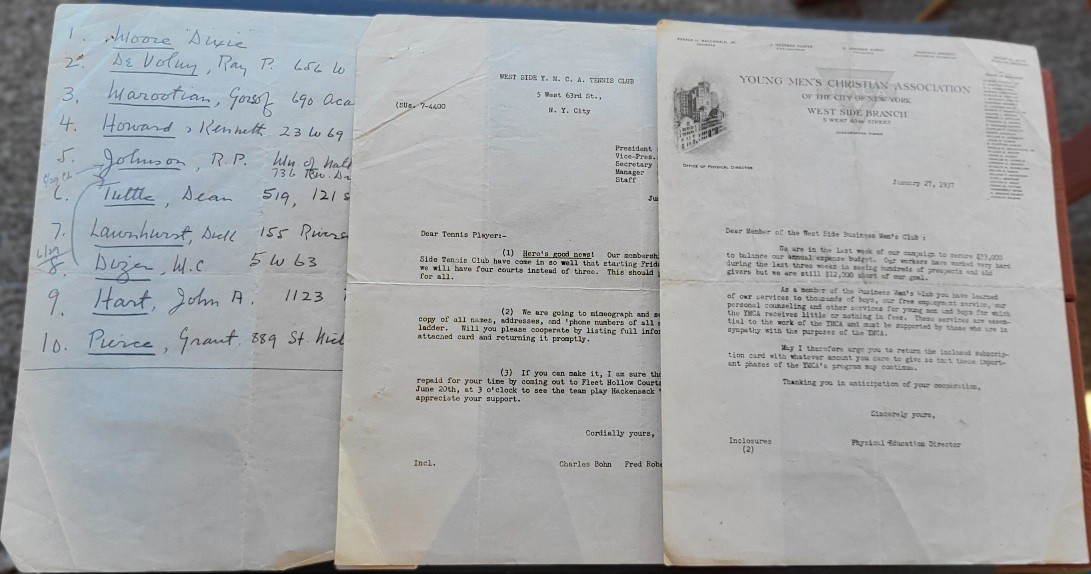 1. Moore "Dixie"
2. De Voluy, Ray P. 656 W
3. Marootian, 690 Aca
4. Howard, Kenneth 23 W 69
5. Johnson, R.P. Wm. of Nat
736 Riv. Dr
6. Tuttle, Dean 519, 121 s
7. Lawnhurst, Dick 155 Rivers
8. Dozer, W.C 5 W 63
9. Hart, John A. 1123
10. Pierce, Grant. 889 St. Nic
WEST SIDE Y. M. C. A. TENNIS CLUB
5 West 63rd St.,
(SUs. 7-4400
N. Y. City
President
Vice-Pres.
Secretary
Manager
Staff
Ju
Dear Tennis Player:-
(1) Here's good news! Our membersh
Side Tennis Club have come in so well that starting Frid
we will have four courts instead of three. This should
for all.
(2) We are going to mimeograph and s
copy of all names, addresses, and 'phone numbers of all
ladder. Will you please cooperate by listing full infor
attached card and returning it promptly.
(3) If you can make it, I am sure the
repaid for your time by coming out to Fleet Hollow Courts
June 20th, at 3 o'clock to see the team play Hackensack
appreciate your support.
Cordially yours,
Incl.
Charles Bohn Fred Robe
YOUNG MEN'S CHRISTIAN ASSOCIATION
OF THE CITY OF NEW YORK
WEST SIDE BRANCH
5 WEST 63RD STREET
OFFICE OF PHYSICAL DIRECTOR
January 27, 1937
Dear Member of the West Side Business Men's Club:
We are in the last week of our campaign to secure $73,000
to balance our annual expense budget. Our workers have worked very hard
during the last three weeks in seeing hundreds of prospects and old
givers but we are still $12,000 short of our goal.
As a member of the Business Men's Club you have learned
of our services to thousands of boys, our free employment service, our
personal counseling and other services for young men and boys for which
the YMCA receives little or nothing in fees. These services are essen-
tial to the work of the YMCA and must be supported by those who are in
sympathy with the purposes of the YMCA.
May I therefore urge you to return the inclosed subscrip-
tion card with whatever amount you care to give so that these import-
ant phases of the YMCA's program may continue.
Thanking you in anticipation of your cooperation,
Sincerely yours,
Inclosures
(2)
Physical Education Director